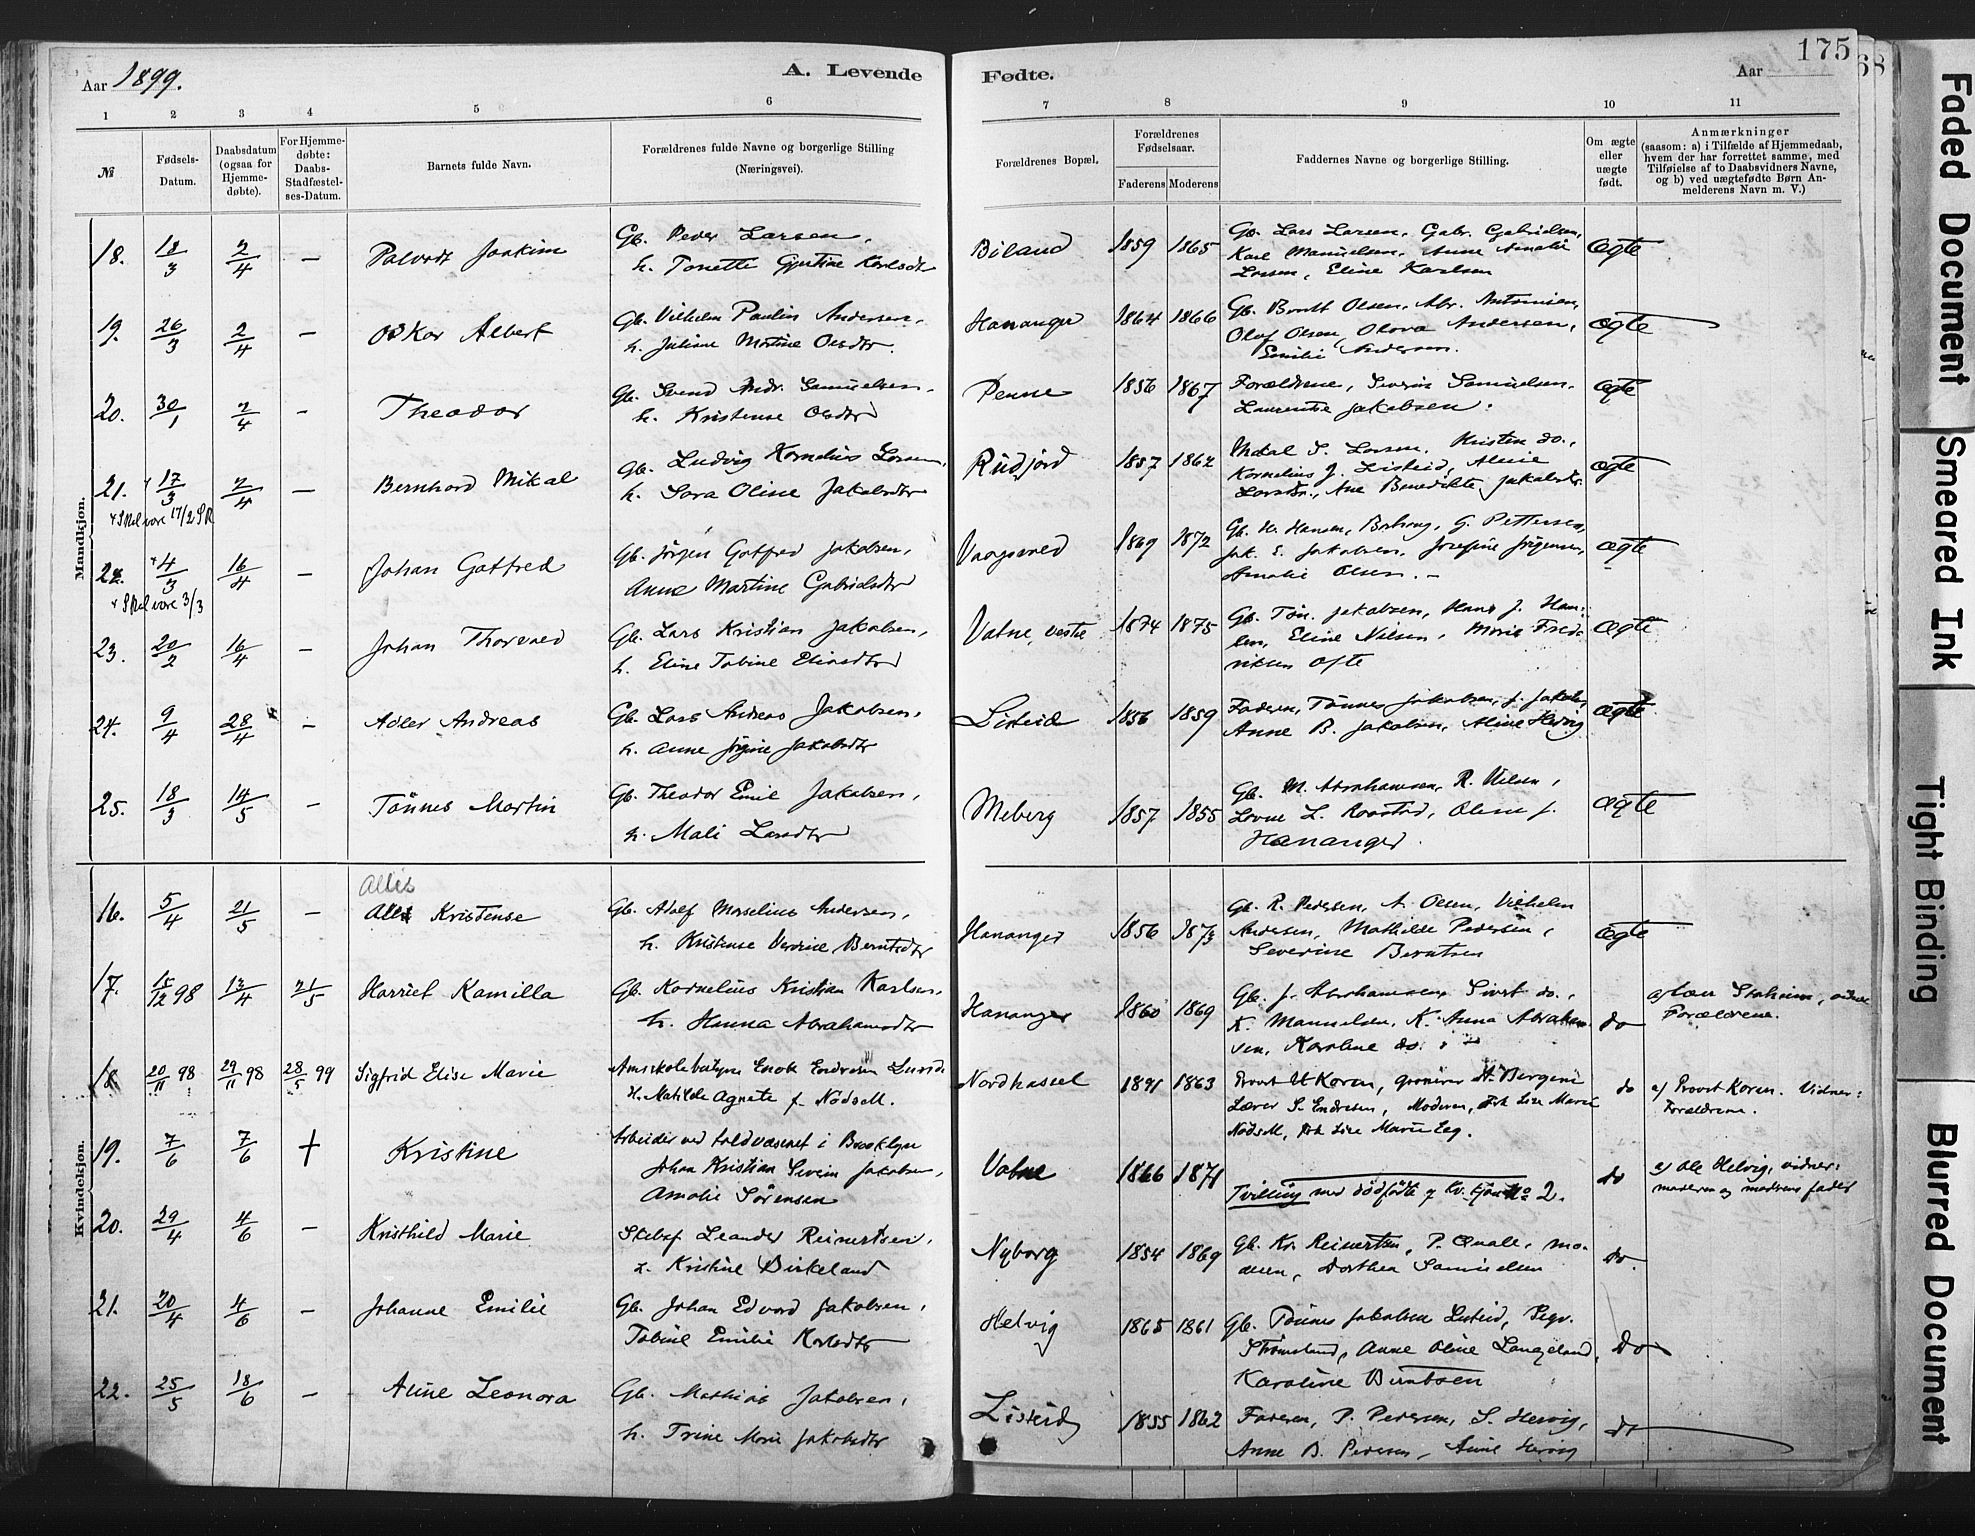 Aar 1899.
A. Levende
Fødte.
Aar
175
68
1 2 3 4 5 6 7 8 9 10 11
№
Fødsels-Datum.
Daabsdatum (ogsaa for Hjemme-døbte).
For Hjemme-døbte: Daabs-Stadfæstel-ses-Datum.
Barnets fulde Navn.
Forældrenes fulde Navne og borgerlige Stilling (Næringsvei).
Forældrenes Bopæl.
Forældrenes Fødselsaar.
Faderens Moderens
Faddernes Navne og borgerlige Stilling.
Om ægte eller uægte født.
Anmærkninger
(saasom: a) i Tilfælde af Hjemmedaab,
hvem der har forrettet samme, med
Tilføielse af to Daabsvidners Navne,
og b) ved uægtefødte Børn An-
melderens Navn m. V.)
Mandkjøn.
18. 18/3 2/4 — Joakim Gb. Peder Larsen, h. Tonette Gjertine Karlsdtr Biland 1859 1865 Gb. Lars Larsen, Gabr. Gabrielsen,
Karl Manuelsen, Anne Amalie
Larsen, Eline Karlsen ægte
19. 26/3 2/4 — Oskar Albert Gb. Vilhelm Paulin Andersen, h. Juliane Martine Olsdtr. Hananger 1864 1866 Gb. Berndt Olsen, Abr. Antonisen,
Olaf Olsen, Olava Andersen,
Emilie Andersen. ægte
20. 30/1 2/4 - Theodor Gb. Svend Andr. Samuelsen, h. Kristense Olsdtr Penne 1856 1867 Forældrene, Severin Samuelsen,
Laurentse Jakobsen. ægte
21. 17/3 2/4 — Bernhard Mikal Gb. Ludvig Kornelius Larsen, h. Sara Oline Jakobsdtr Rudjord 1857 1862 Mikal S. Larsen, Kristen do.,
Kornelius J. Listeid, Aline
Larsdtr., Ane Benedikte Jakobsdtr. ægte
+ Skal være 17/2 SR
22. +4/3 16/4 — Johan Gotfred Gb. Jørgen Gotfred Jakobsen, Anne Martine Gabrielsdtr Vaagsvold 1869 1872 Gb. H. Hansen, Borhaug, G. Pettersen,
Jak. E. Jakobsen, Josefine Jörgensen,
Amalie Olsen. — ægte
+ Skal være 3/3
23. 20/2 16/4 - Johan Thorvald Gb. Lars Kristian Jakobsen, h. Eline Tobine Eliasdtr Vatne, vestre 1874 1875 Gb. Tön. Jakobsen, Hans J. Han-
sen, Eline Nilsen, Marie Fred-
riksen Ofte ægte
24. 9/4 28/4 - Adler Andreas Gb. Lars Andreas Jakobsen, h. Anne Jörgine Jakobsdtr Listeid 1856 1859 Faderen, Tönnes Jakobsen, J. Jakobs,
Anne B. Jakobsen, Aline Helvig ægte
25. 18/3 14/5 - Tönnes Martin Gb. Theodor Emil Jakobsen, h. Mali Larsdtr Meberg 1857 1855 Gb. M. Abrahamsen, R. Nilsen,
Lovne L. Rorstad, Oline J.
Hananger. ægte
Kvindekjøn.
Allis
16. 5/4 21/5 — Kristense Gb. Adolf Marselius Andersen, h. Kristense Verdine Berntsdtr Hananger 1856 1873 Gb. R. Pedersen, A. Olsen, Vilhelm
Andersen, Mathilde Pedersen,
Severine Berntsen ægte
17. 15/12 98 13/4 21/5 Harriet Kamilla Gb. Kornelius Kristian Karlsen, h. Hanna Abrahamsdtr Hananger 1860 1869 Gb. J. Abrahamsen, Sivert do.,
K. Manuelsen, K. Anna Abraham-
sen, Karoline do. do a) Lær. , vidner
Forældrene.
18. 20/11 98 29/11 98 28/5 99 Sigfrid Elise Marie Amtskolebestyrer Enok Endresen Lunde H. Matilde Agnete f. Nødsell. Nordhassel 1871 1863 Provst U. Koren, A. Bergene
Lærer S. Endresen, Moderen, Frk Lise Marie
Nødsell, Frk Lise Marie Eeg. do a) Provst Koren. Vidner:
Forældrene.
19. 7/6 7/6 + Kristine Arbeider ved toldvæsenet i Brooklyn
Johan Kristian Severin Jakobsen,
Amalie Sörensen Vatne 1866 1871 Tvilling med dødfödte q Kv. kjøn No 2. do a) Ole Helvig, vidner:
moderen og moderens fader
20. 29/4 4/6 - Kristhild Marie Skibsf. Leander Reinertsen, h. Kristine Birkeland Nyborg 1854 1869 Gb. Kr. Reinertsen, P. Qvale, mo-
deren, Dorthea Samuelsen do.
21. 20/4 4/6 - Johanne Emilie Gb. Johan Edvard Jakobsen, Tobine Emilie Karlsdtr Helvig 1865 1861 Gb. Tönnes Jakobsen Listeid, Segv.
Strömsland, Anne Oline Langeland,
Karoline Berntsen do
22. 25/5 18/6 — Aline Leonora Gb. Mathias Jakobsen, h. Trine Marie Jakobsdtr Listeid 1855 1862 Faderen, P. Pedersen, S. Helvig,
Anne B. Pedersen, Aline Helvig do
Faded Document
Smeared Ink
Tight Binding
Blurred Document